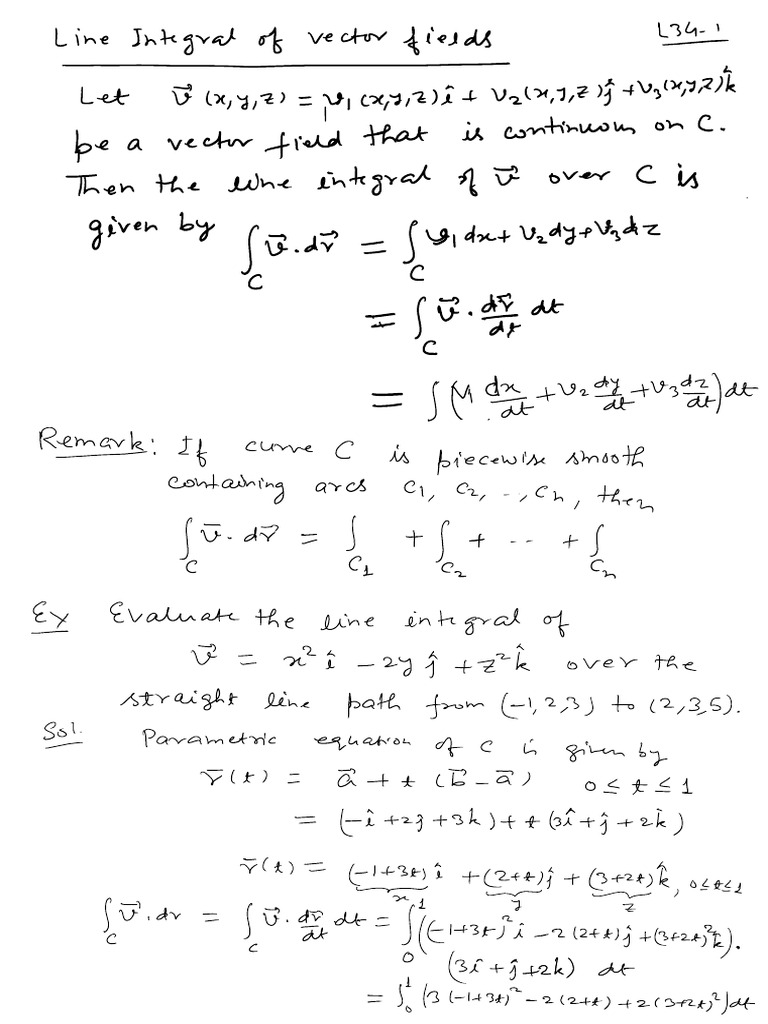 Line Integral of vector fields
L34-1
Let v⃗ (x,y,z) = v₁ (x,y,z) î + v₂(x,y,z) ĵ + v₃(x,y,z) k̂
be a vector field that is continuous on C.
Then the line integral of v⃗ over C is
given by ∫_C v⃗ · dr⃗ = ∫_C v₁dx + v₂dy + v₃dz
= ∫_C v⃗ · dr⃗/dt dt
= ∫ (v₁ dx/dt + v₂ dy/dt + v₃ dz/dt) dt
Remark: If curve C is piecewise smooth
containing arcs C₁, C₂, .., Cₙ, then
∫_C v̄ · dr⃗ = ∫_C₁ + ∫_C₂ + -- + ∫_Cₙ
Ex Evaluate the line integral of
v⃗ = x² î - 2y ĵ + z² k̂ over the
straight line path from (-1,2,3) to (2,3,5).
Sol. Parametric equation of C is given by
r̄(t) = a⃗ + t (b⃗ - a⃗) 0 ≤ t ≤ 1
= (-î + 2j + 3k) + t (3î + ĵ + 2k̂)
r̄(t) = (-1+3t) î + (2+t) ĵ + (3+2t) k̂, 0≤t≤1
x y z
∫_C v⃗ · dr = ∫_C v⃗ · dr̄/dt dt = ∫₀¹ ((-1+3t)² i - 2(2+t) ĵ + (3+2t)² k̂).
(3î + ĵ + 2k) dt
= ∫₀¹ (3(-1+3t)² - 2(2+t) + 2(3+2t)²) dt